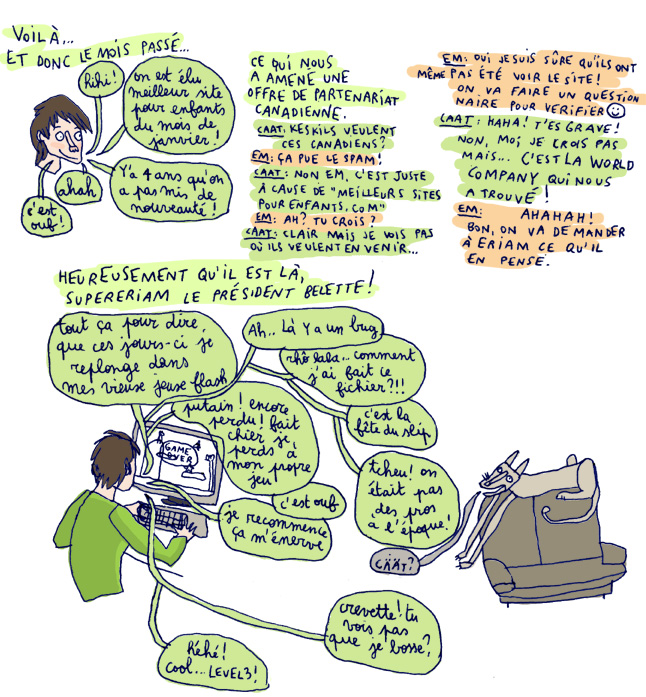 VOILÀ...
ET DONC LE MOIS PASSÉ...
hihi!
on est élu
meilleur site
pour enfants
du mois de
janvier!
ahah
c'est
ouf!
Y'a 4 ans qu'on
a pas mis de
nouveauté!
CE QUI NOUS
A AMENÉ UNE
OFFRE DE PARTENARIAT
CANADIENNE.
CAAT: KESKILS VEULENT
CES CANADIENS?
EM: ÇA PUE LE SPAM!
CAAT: NON EM, C'EST JUSTE
À CAUSE DE "MEILLEURS SITES
POUR ENFANTS.COM"
EM: AH? TU CROIS?
CAAT: CLAIR MAIS JE VOIS PAS
OÙ ILS VEULENT EN VENIR...
EM: OUI JE SUIS SÛRE QU'ILS ONT
MÊME PAS ÉTÉ VOIR LE SITE!
ON VA FAIRE UN QUESTION
NAIRE POUR VERIFIER
CAAT: HAHA! T'ES GRAVE!
NON, MOI JE CROIS PAS
MAIS... C'EST LA WORLD
COMPANY QUI NOUS
A TROUVÉ!
EM: AHAHAH!
BON, ON VA DEMANDER
À ERIAM CE QU'IL
EN PENSE.
HEUREUSEMENT QU'IL EST LÀ,
SUPERERIAM LE PRÉSIDENT BELETTE!
tout ça pour dire,
que ces jours-ci je
replonge dans
mes vieux jeux flash
Ah.. Là Y a un bug
rhô lala.. comment
j'ai fait ce
fichier?!!!
c'est la
fête du slip
putain! encore
perdu! fait
chier je
perds à
mon propre
jeu
GAME
OVER
c'est ouf
je recommence
ça m'énerve
tcheu! on
était pas
des pros
à l'époque!
CÄÄT?
crevette! tu
vois pas
que je bosse?
héhé!
cool... LEVEL 3!